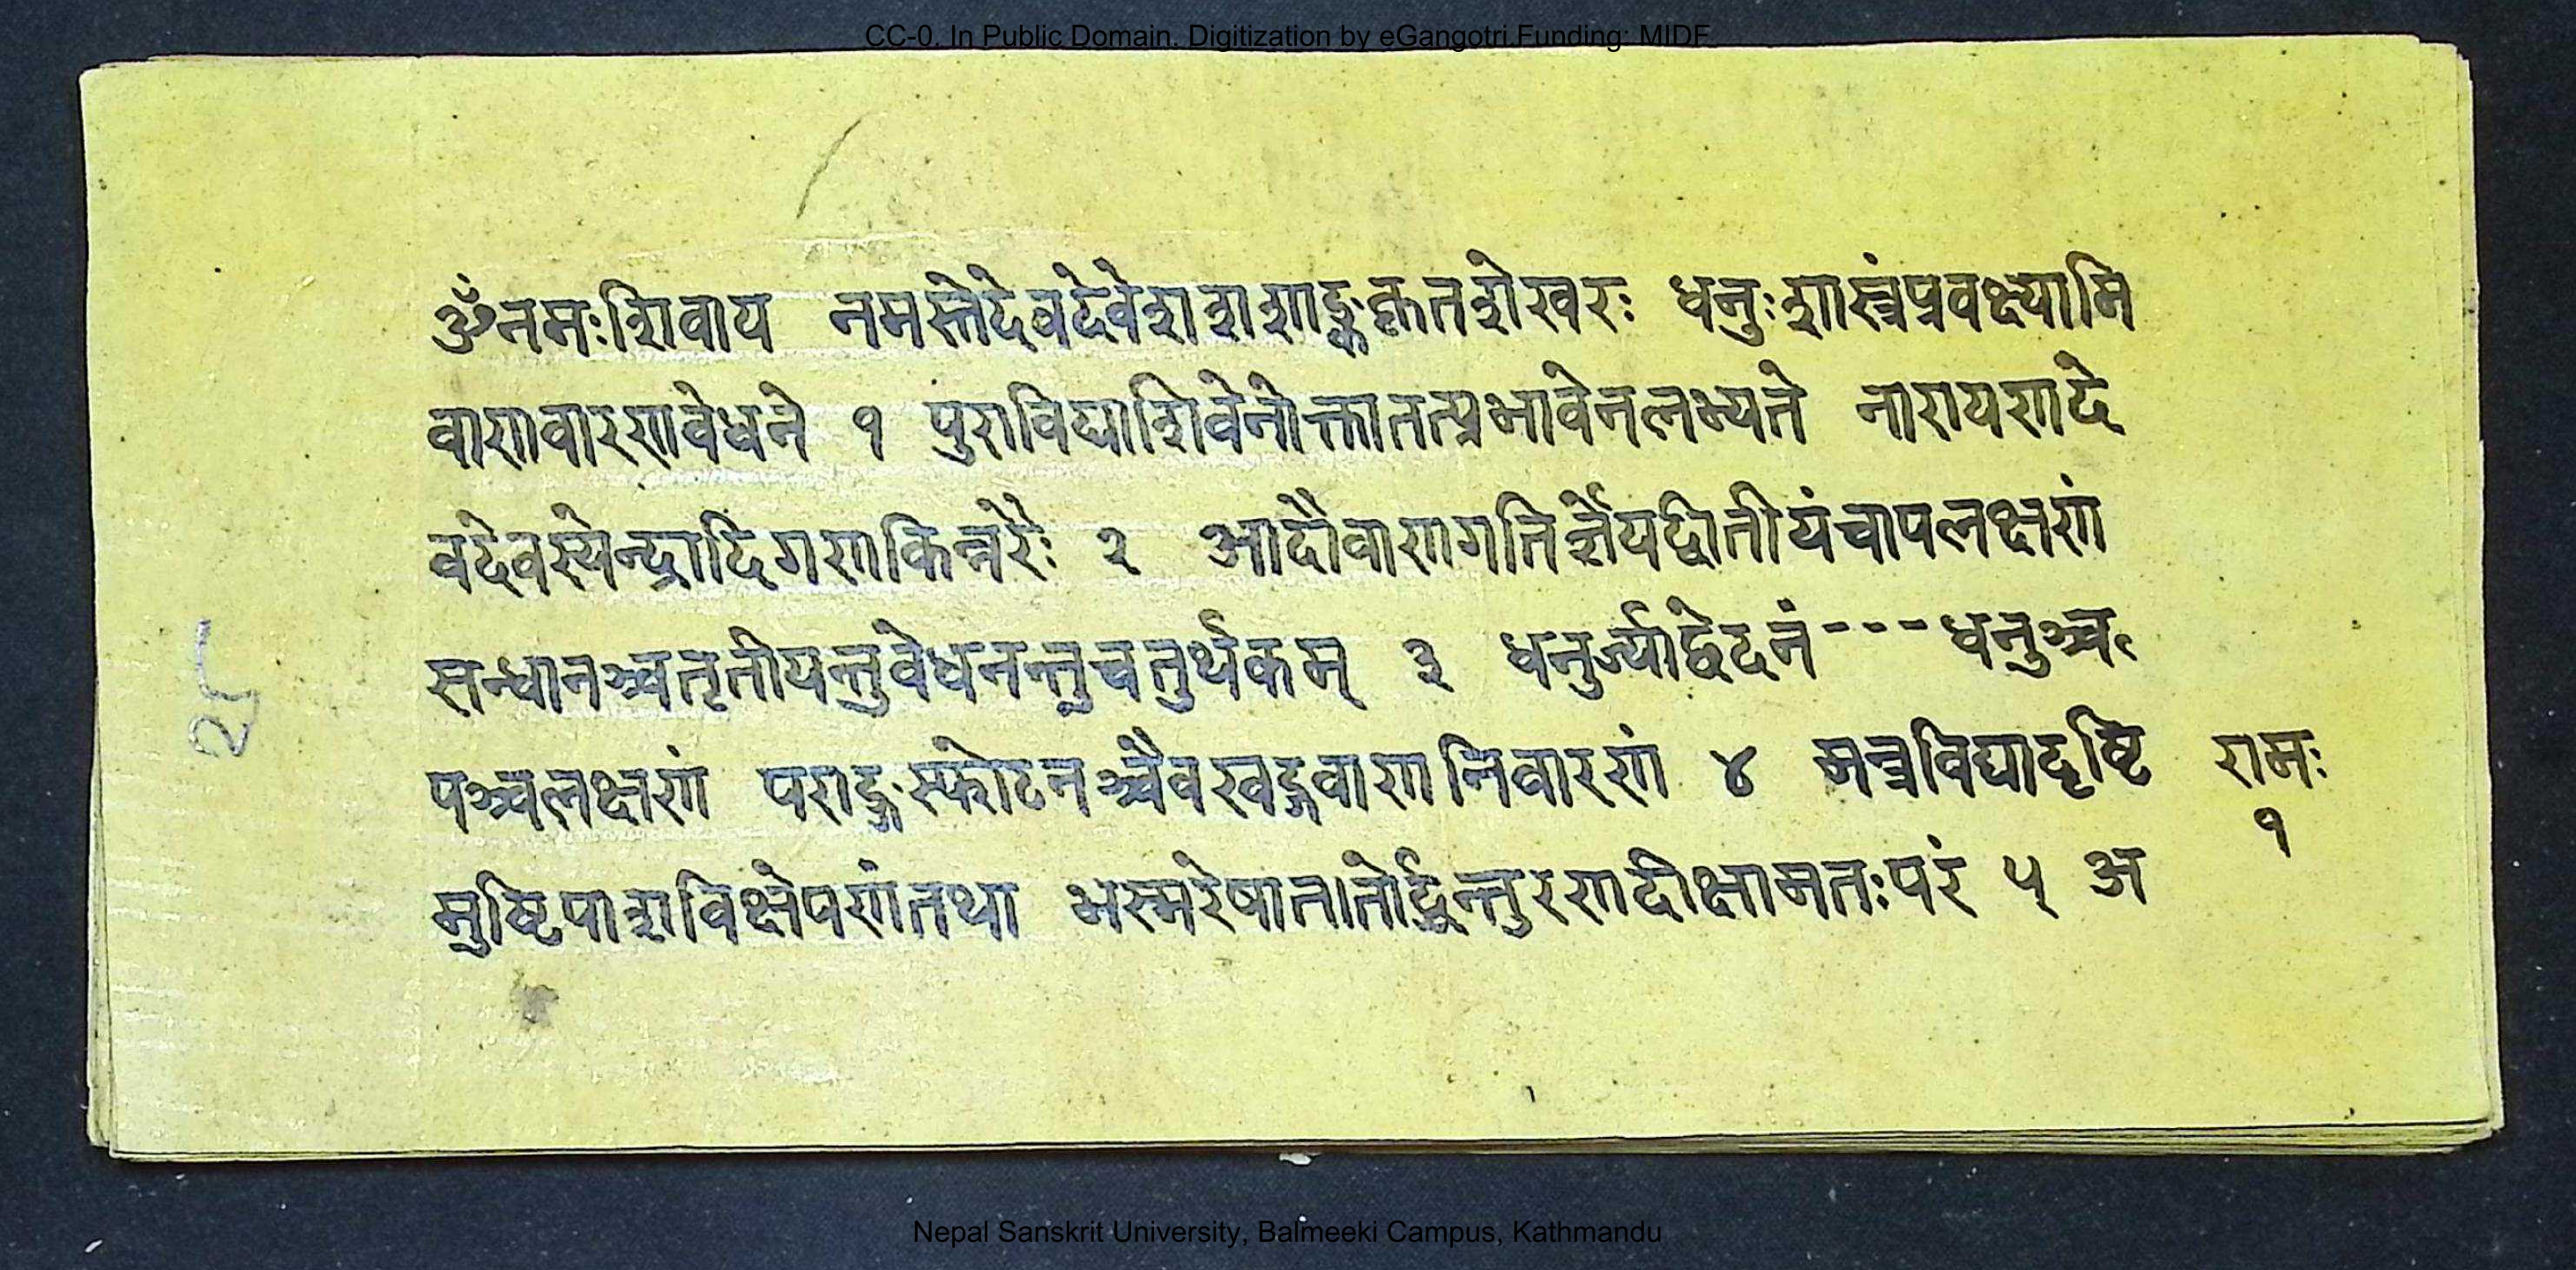 CC-0. In Public Domain. Digitization by eGangotri.Funding: MIDF
ॐनमःशिवाय नमस्तेदेवदेवेशशशाङ्ककृतशेखरः धनुःशास्त्रंप्रवक्ष्यामि
वाणवारणवेधने १ पुराविद्याशिवेनोक्तातत्प्रभावेनलभ्यते नारायणदे
वदेवस्येन्द्रादिगणकिन्नरैः २ आदौवाणगतिर्ज्ञेयद्वितीयंचापलक्षणं
सन्धानञ्चतृतीयन्तुवेधनन्तुचतुर्थकम् ३ धनुर्ज्याद्वेदनं---धनुश्च
पञ्चलक्षणं पराङ्गस्फोटनञ्चैवखड्गवाणनिवारणं ४ मन्त्रविद्यादृष्टि रामः
१
मुष्टिपाशविक्षेपणंतथा भस्मरेषातन्तुरणदीक्षामतःपरं ५ अ
२८
Nepal Sanskrit University, Balmeeki Campus, Kathmandu